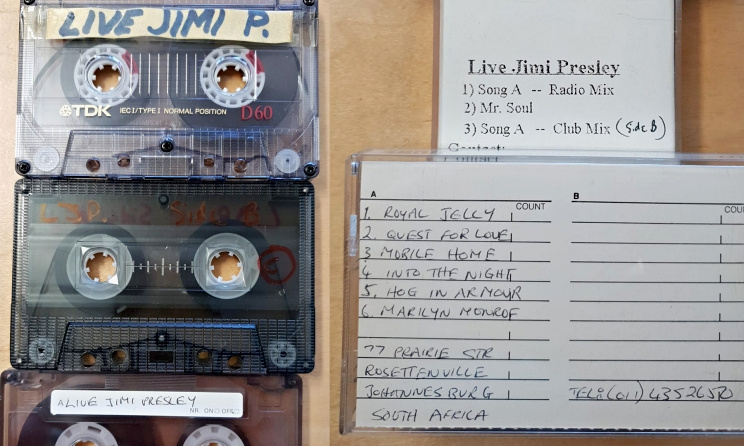 LIVE JIMI P.
TDK IECI/TYPE I NORMAL POSITION D60
L.J.P. Side B
E
A LIVE JIMI PRESLEY
NR. ON□ OFF□
Live Jimi Presley
1) Song A -- Radio Mix
2) Mr. Soul
3) Song A -- Club Mix (Side B)
Contact:
A COUNT B COU
1. ROYAL JELLY
2. QUEST FOR LOVE
3 MOBILE HOME
4 INTO THE NIGHT
5. HOG IN ARMOUR
6. MARILYN MONROE
77 PRAIRIE STR
ROSETTENVILLE
JOHANNESBURG TEL: (011) 4352650
SOUTH AFRICA